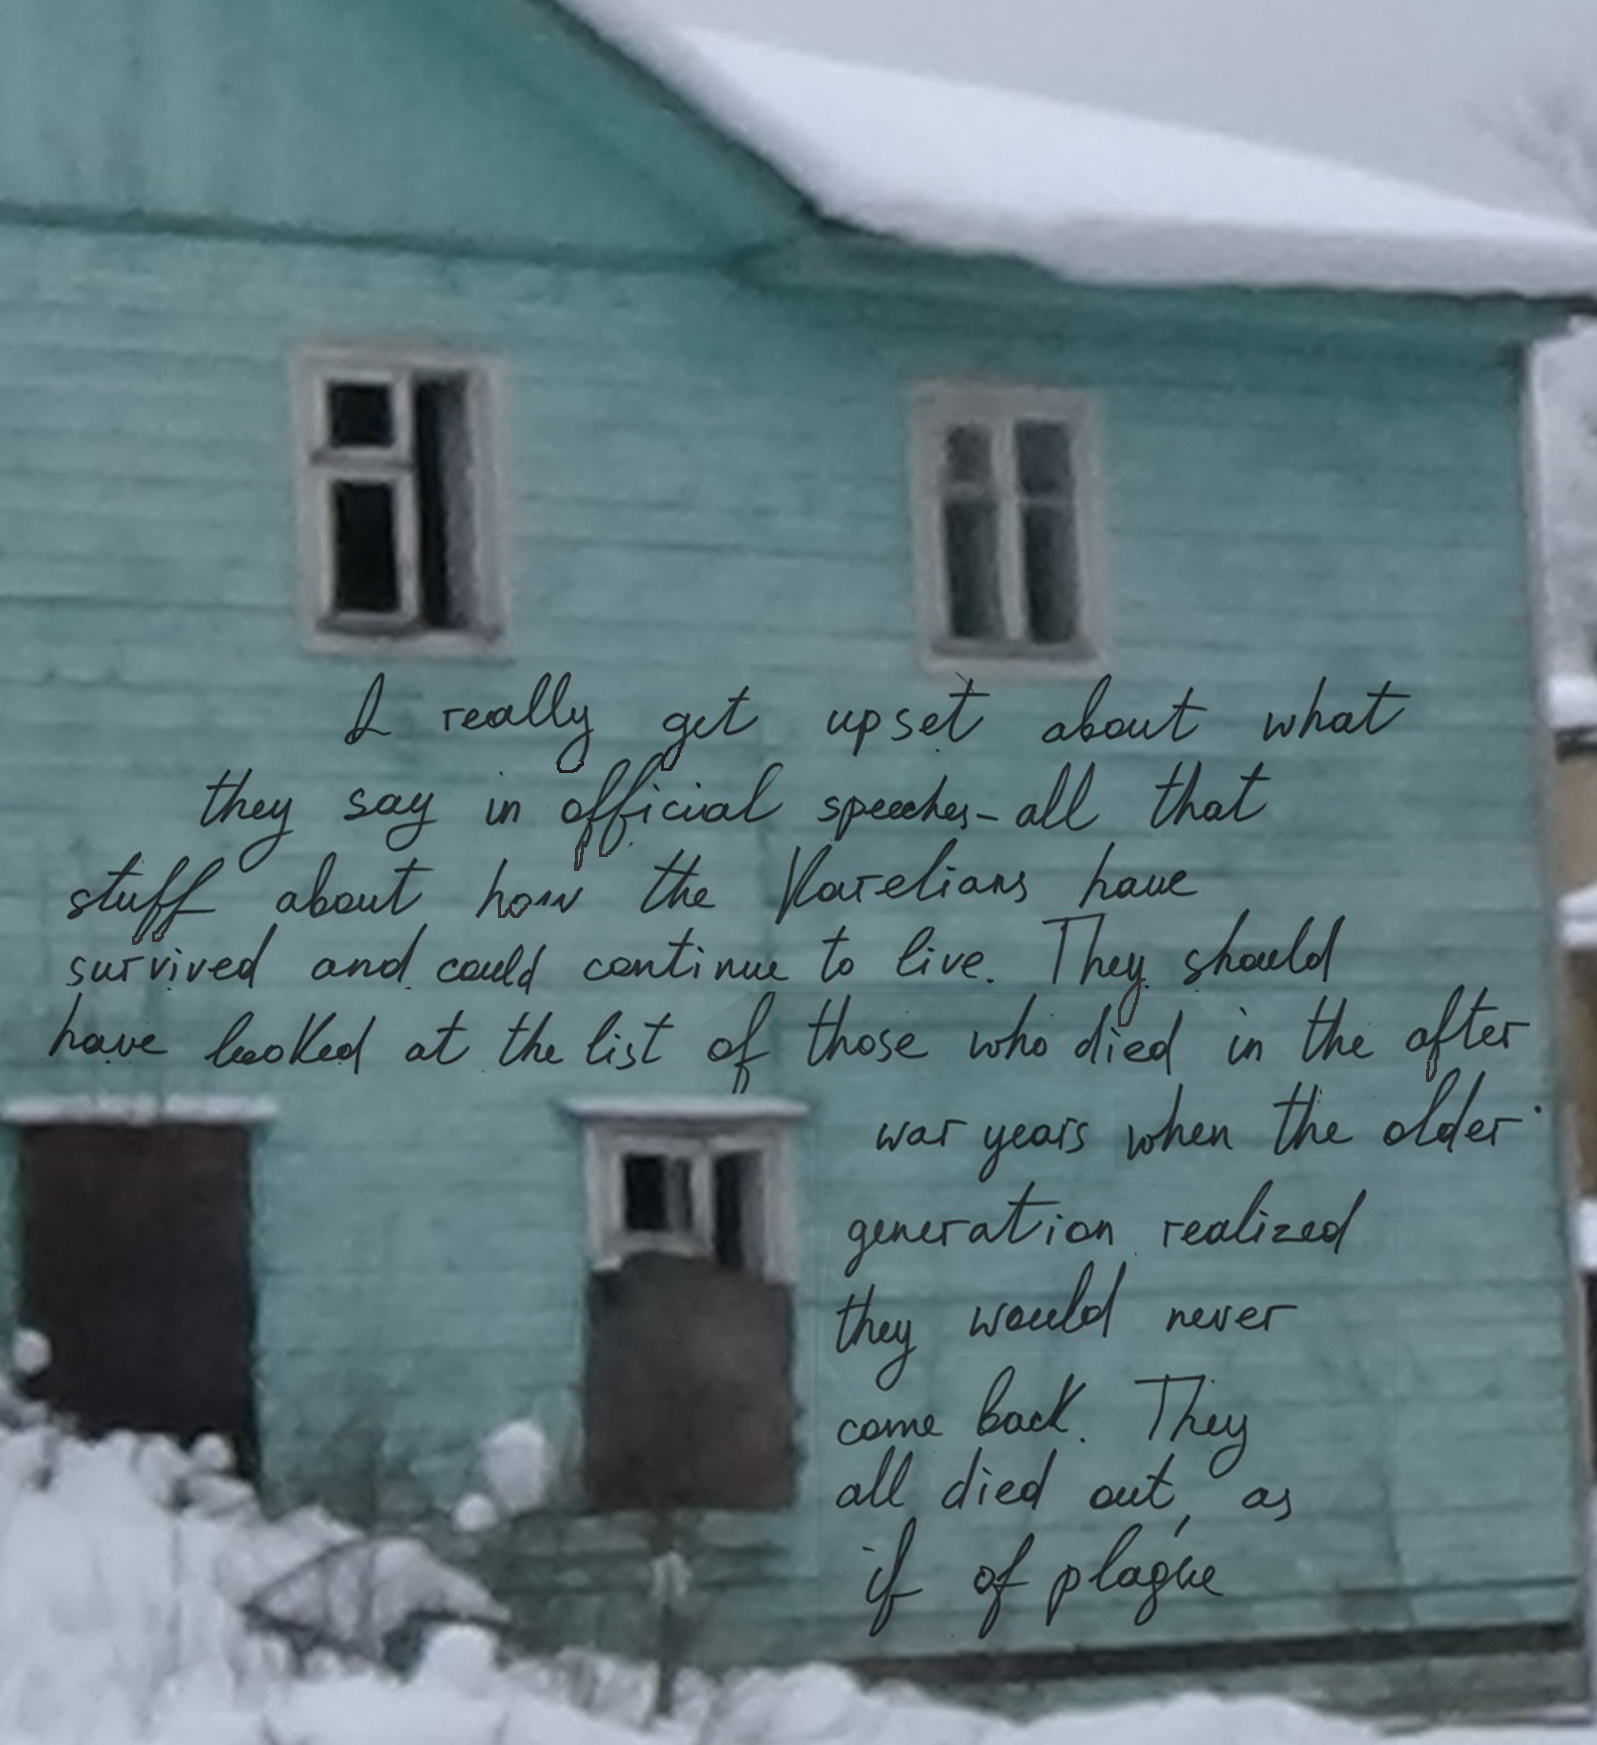 I really get upset about what
they say in official speeches - all that
stuff about how the Karelians have
survived and could continue to live. They should
have looked at the list of those who died in the after
war years when the older
generation realized
they would never
come back. They
all died out, as
if of plague